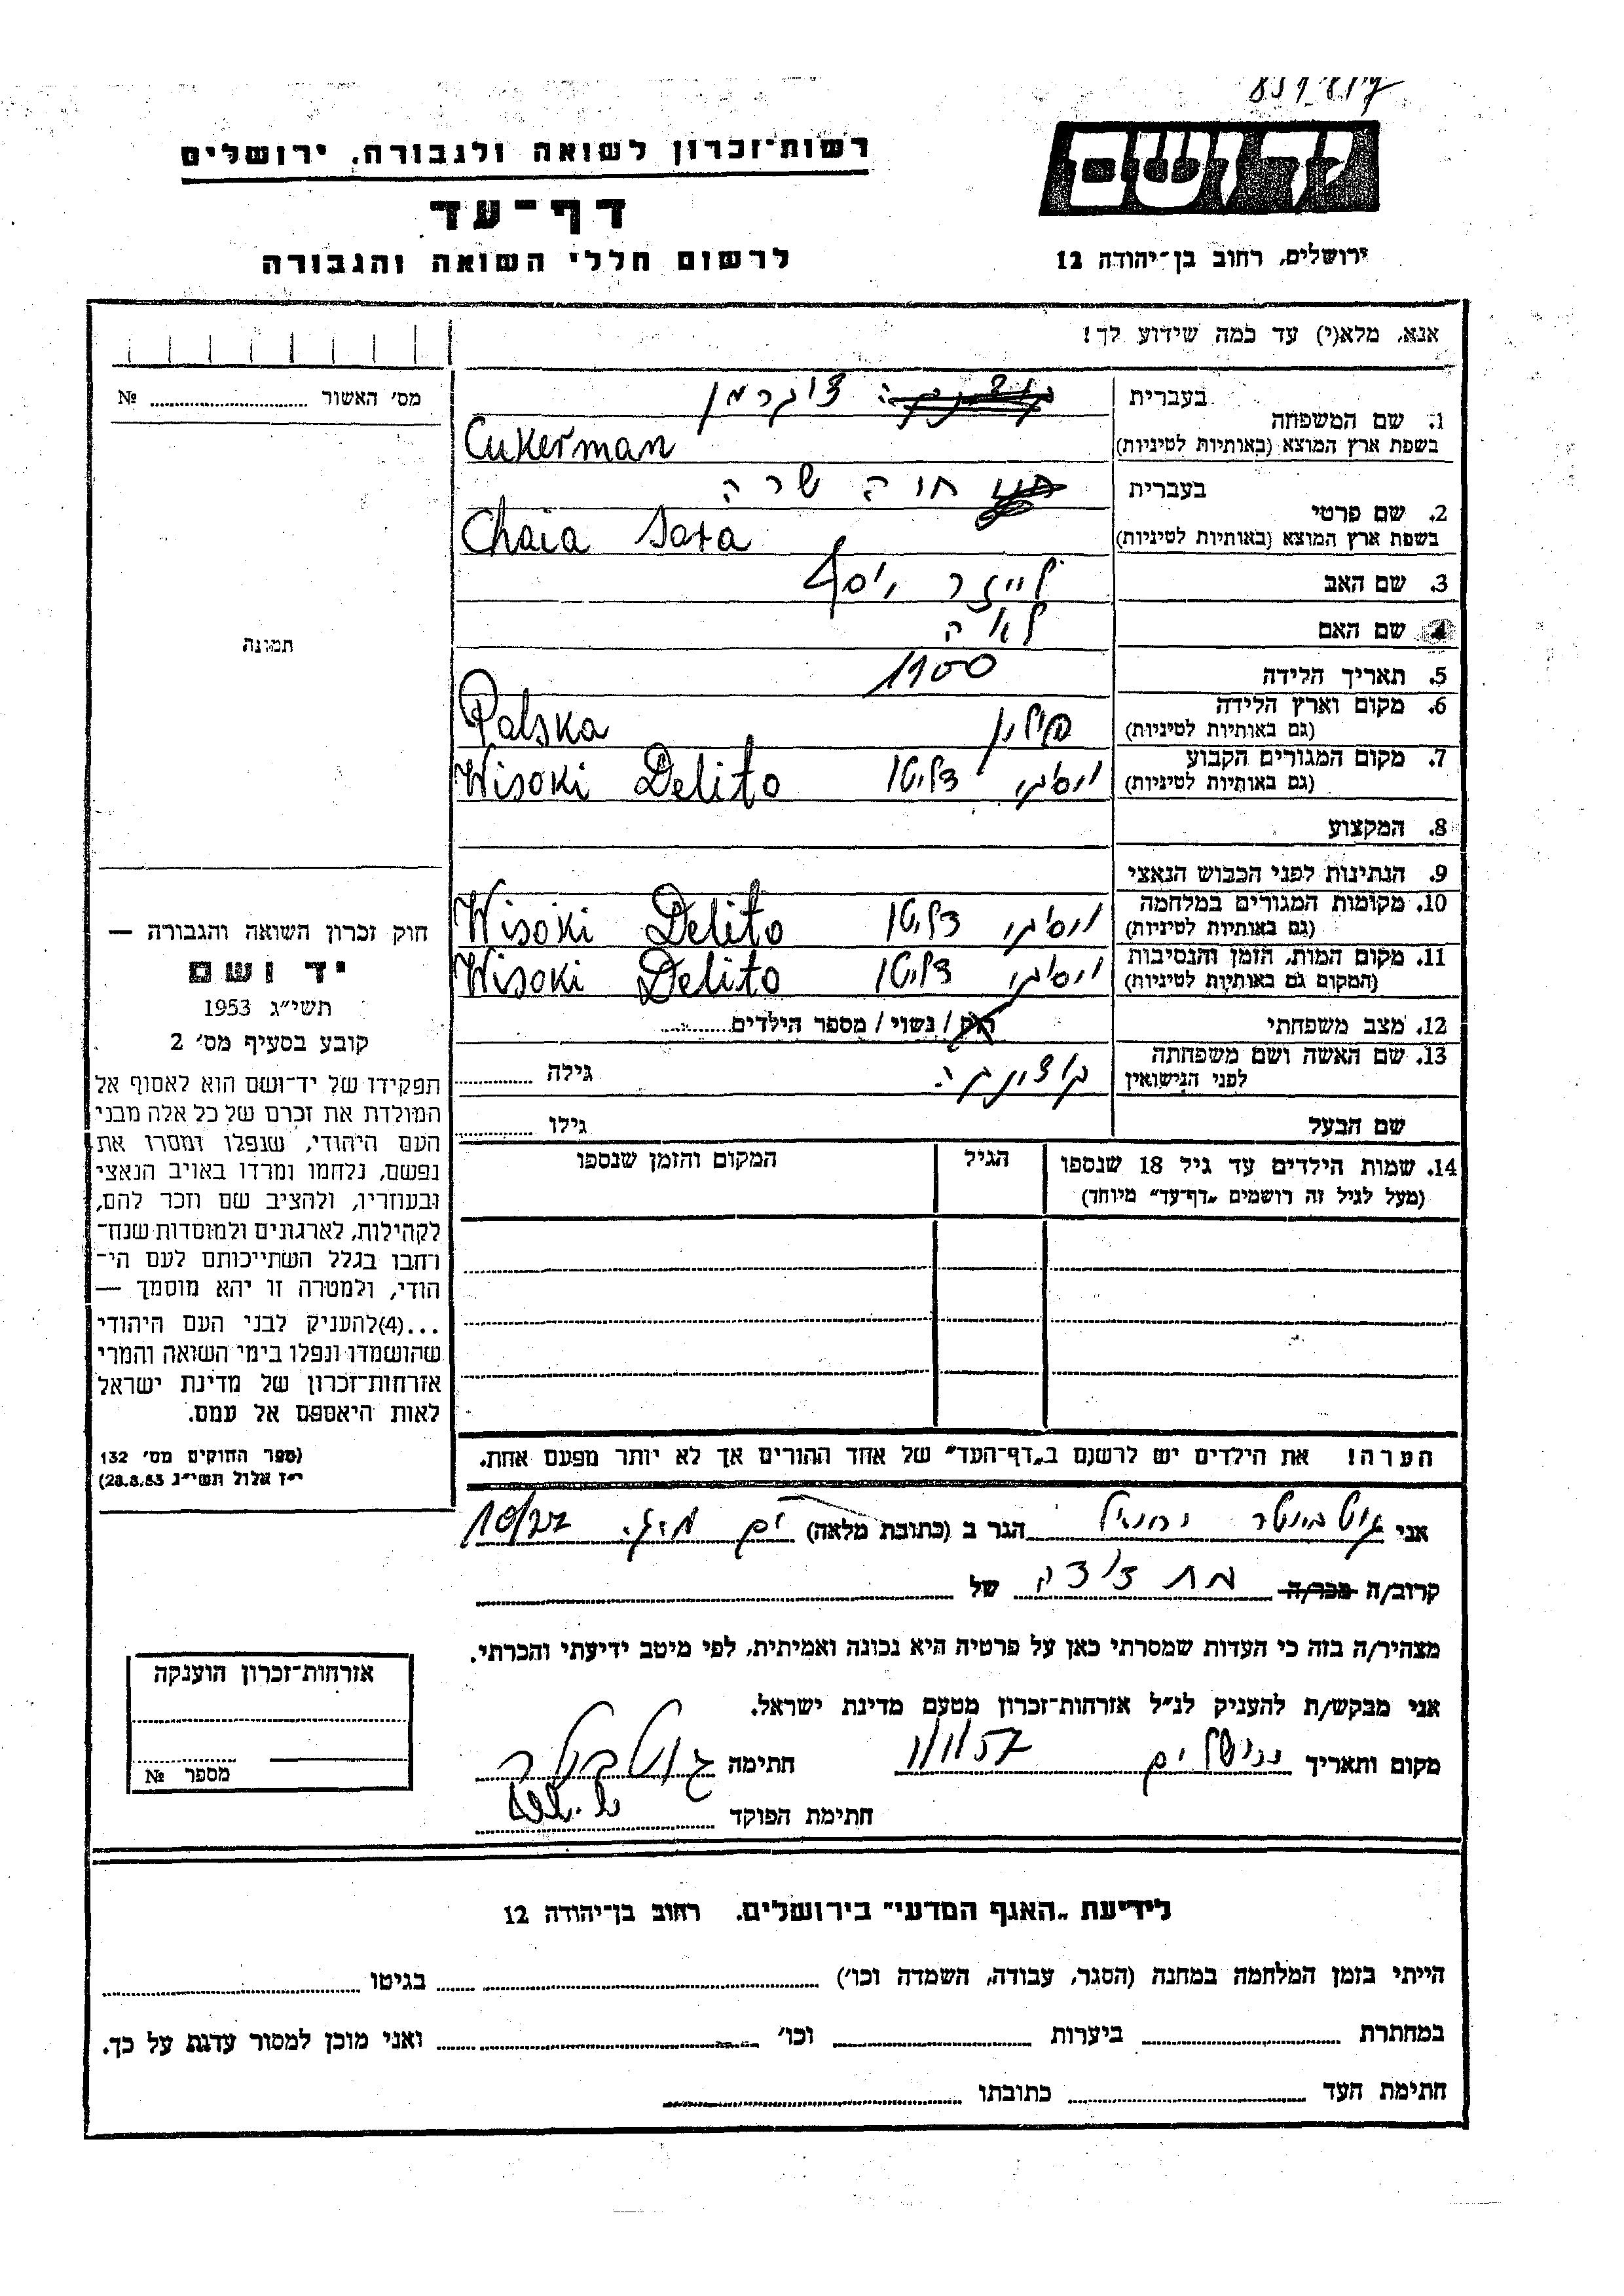 רשות־זכרון לשואה ולגבורה, ירושלים
דף־עד
לרשום חללי השואה והגבורה
יד ושם
ירושלים, רחוב בן־יהודה 12
אנא, מלא(י) עד כמה שידוע לך!
מס׳ האשור № ........
תמונה
1. שם המשפחה
בעברית צוקרמן
בשפת ארץ המוצא (באותיות לטיניות) Cukerman
2. שם פרטי
בעברית חיה שרה
בשפת ארץ המוצא (באותיות לטיניות) Chaia Sara
3. שם האב לייזר יוסף
4. שם האם לאה
5. תאריך הלידה 1900
6. מקום וארץ הלידה פולין Polska
(גם באותיות לטיניות)
7. מקום המגורים הקבוע ויסוקי דליטו Wisoki Delito
(גם באותיות לטיניות)
8. המקצוע
9. הנתינות לפני הכבוש הנאצי
10. מקומות המגורים במלחמה ויסוקי דליטו Wisoki Delito
(גם באותיות לטיניות)
11. מקום המות, הזמן והנסיבות ויסוקי דליטו Wisoki Delito
(המקום גם באותיות לטיניות)
12. מצב משפחתי רווק / נשוי / מספר הילדים........
13. שם האשה ושם משפחתה
לפני הנישואין גילה ........
שם הבעל גילו ........
14. שמות הילדים עד גיל 18 שנספו הגיל המקום והזמן שנספו
(מעל לגיל זה רושמים „דף־עד״ מיוחד)
הערה! את הילדים יש לרשנם ב„דף־העד״ של אחד ההורים אך לא יותר מפעם אחת.
חוק זכרון השואה והגבורה —
יד ושם
תשי״ג 1953
קובע בסעיף מס׳ 2
תפקידו של יד־ושם הוא לאסוף אל
המולדת את זכרם של כל אלה מבני
העם היהודי, שנפלו ומסרו את
נפשם, נלחמו ומרדו באויב הנאצי
ובעוזריו, ולהציב שם וזכר להם,
לקהילות, לארגונים ולמוסדות שנח־
רחבו בגלל השתייכותם לעם הי־
הודי, ולמטרה זו יהא מוסמך —
...(4)להעניק לבני העם היהודי
שהושמדו ונפלו בימי השואה והמרי
אזרחות־זכרון של מדינת ישראל
לאות היאספם אל עמם.
(ספר החוקים מס׳ 132
י״ז אלול תשי״ג 28.8.53)
אני הגר ב (כתובת מלאה) 10/27
קרוב/ה מכר/ה בת דודה של ........
מצהיר/ה בזה כי העדות שמסרתי כאן על פרטיה היא נכונה ואמיתית, לפי מיטב ידיעתי והכרתי.
אני מבקש/ת להעניק לנ״ל אזרחות־זכרון מטעם מדינת ישראל.
מקום ותאריך ירושלים חתימה
חתימת הפוקד
אזרחות־זכרון הוענקה
מספר №
לידיעת „האגף המדעי״ בירושלים. רחוב בן־יהודה 12
הייתי בזמן המלחמה במחנה (הסגר, עבודה, השמדה וכו׳) ........ בגיטו ........
במחתרת ........ ביערות ........ וכו׳ ........ ואני מוכן למסור עדות על כך.
חתימת העד ........ כתובתו ........